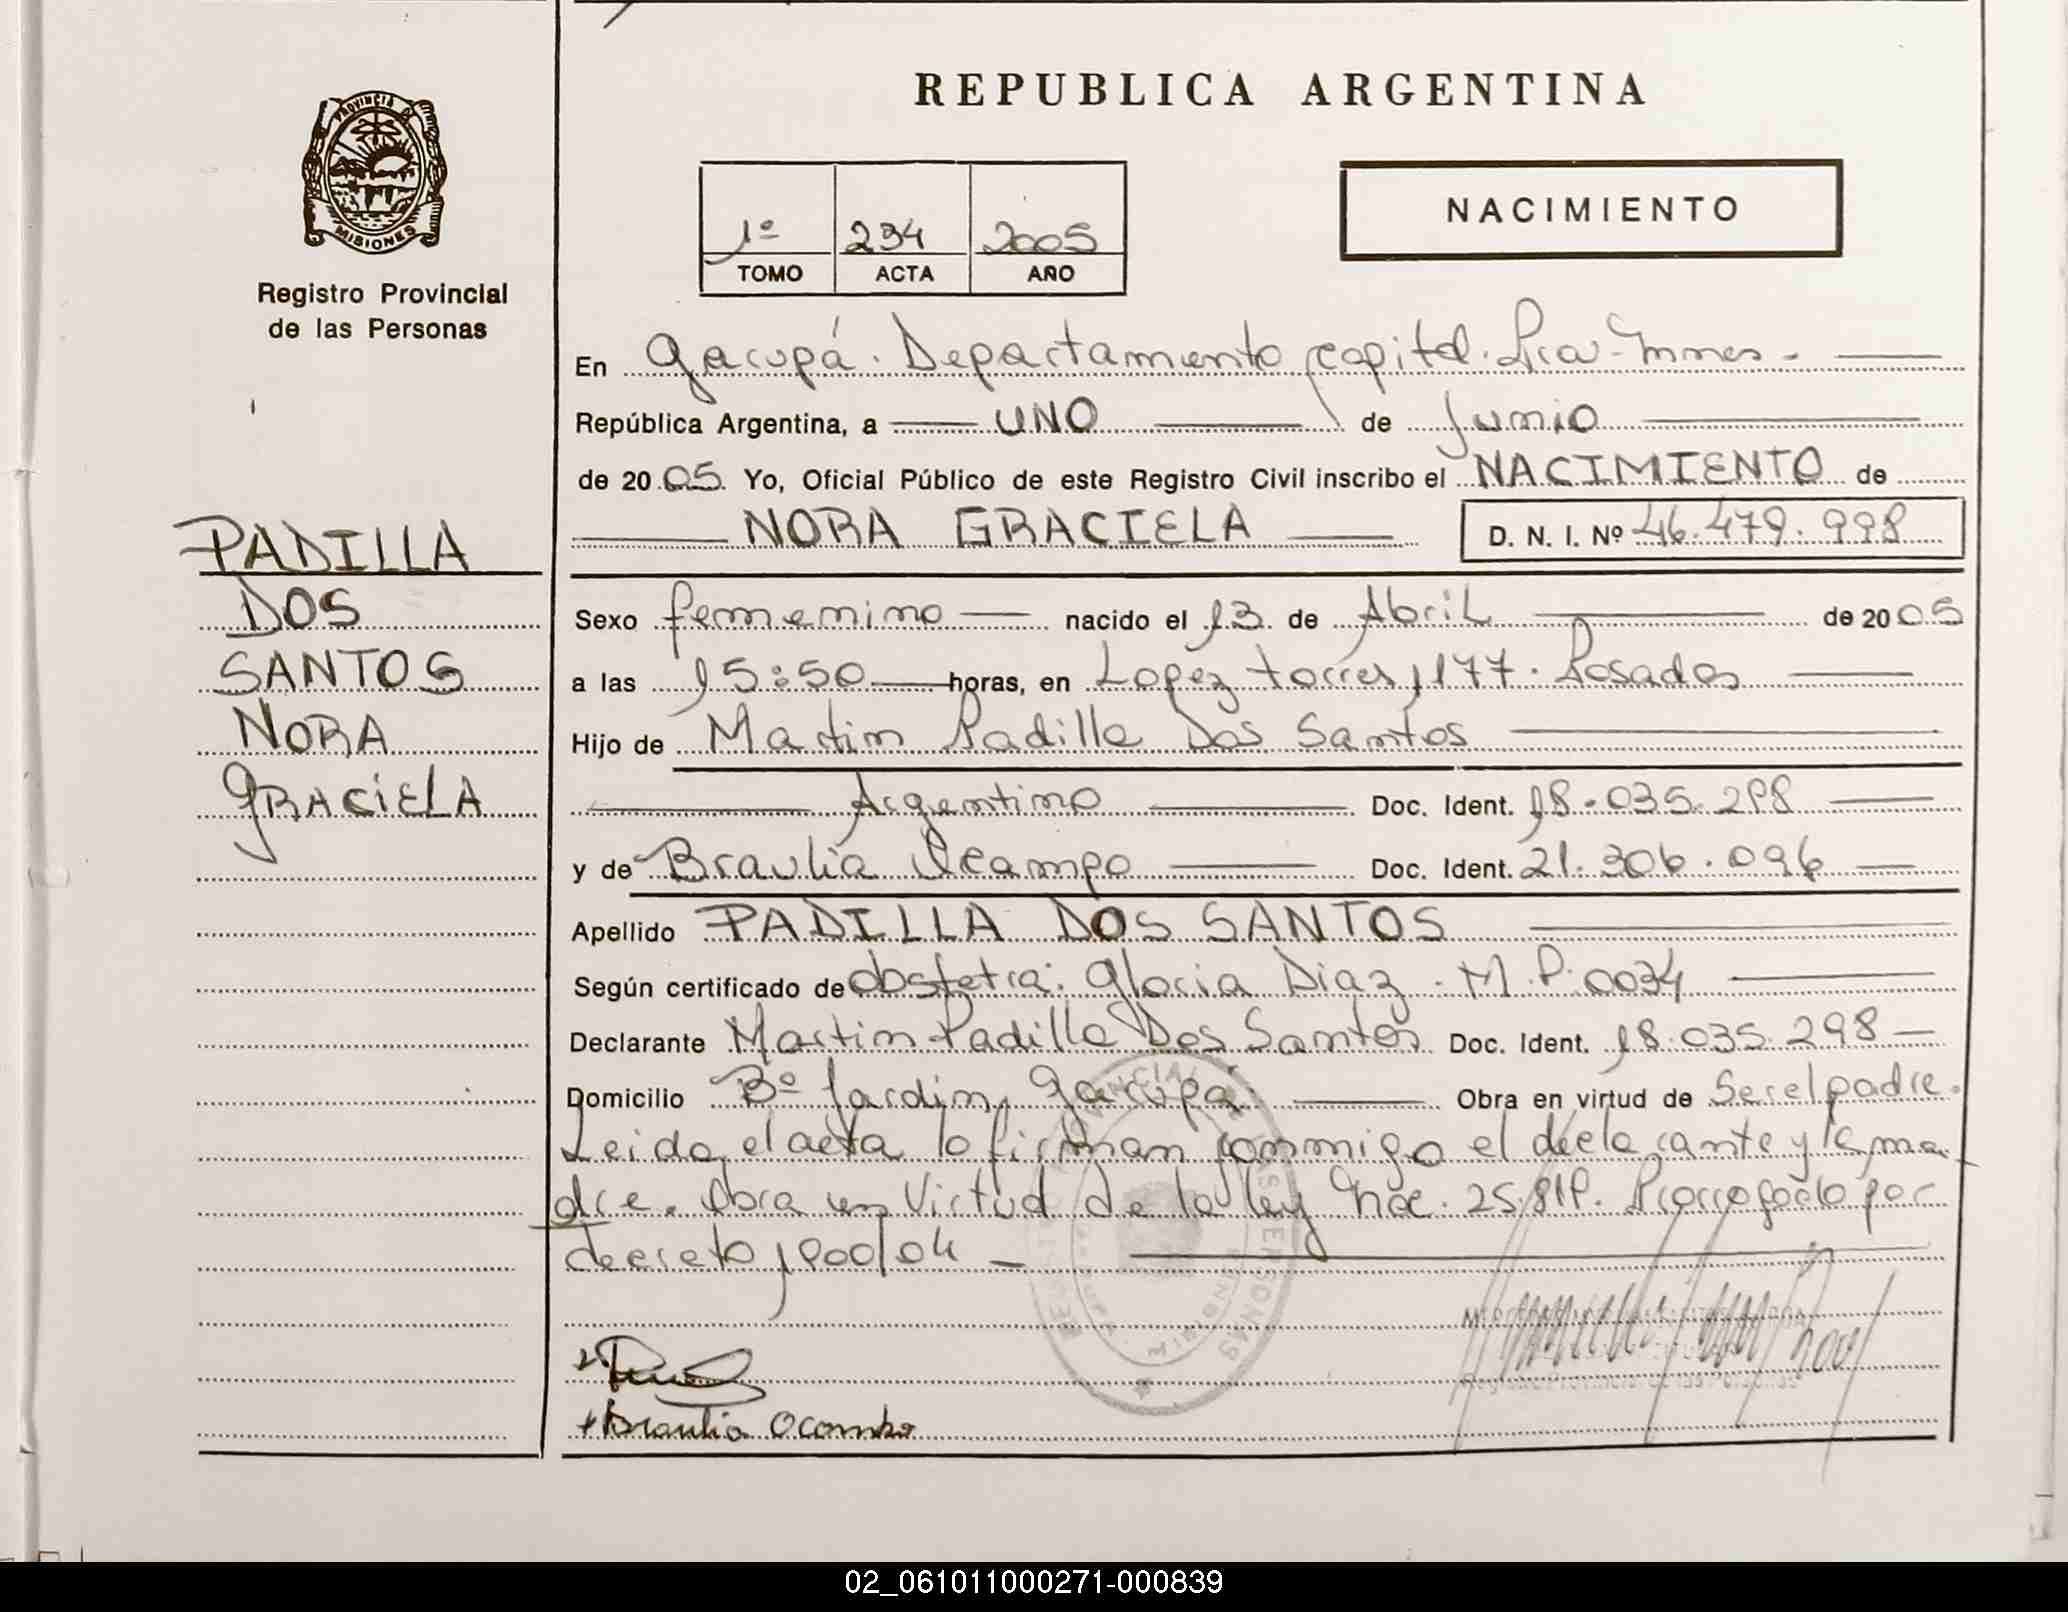 REPUBLICA ARGENTINA
PROVINCIA DE
MISIONES
Registro Provincial
de las Personas
1º 234 2005
TOMO ACTA AÑO
NACIMIENTO
En Garupá. Departamento capital. Pcia. Mnes -
República Argentina, a UNO de Junio
de 2005 Yo, Oficial Público de este Registro Civil inscribo el NACIMIENTO de
NORA GRACIELA D. N. I. Nº 46.479.998
PADILLA
DOS
SANTOS
NORA
GRACIELA
Sexo femenino nacido el 13 de Abril de 2005
a las 15:50 horas, en Lopez torres 1177. Posadas
Hijo de Martin Padilla Dos Santos
Argentino Doc. Ident. 18.035.298
y de Braulia Ocampo Doc. Ident. 21.306.096
Apellido PADILLA DOS SANTOS
Según certificado de obstetra: Gloria Diaz. M.P. 0034
Declarante Martin Padilla Dos Santos Doc. Ident. 18.035.298
Domicilio Bº Jardin, Garupá Obra en virtud de Ser el padre.
Leida el acta lo firman conmigo el declarante y la ma
dre. Obra en Virtud de la ley Nac. 25.819. Prorrogada por
decreto 1900/04 -
Braulia Ocampo
02_061011000271-000839